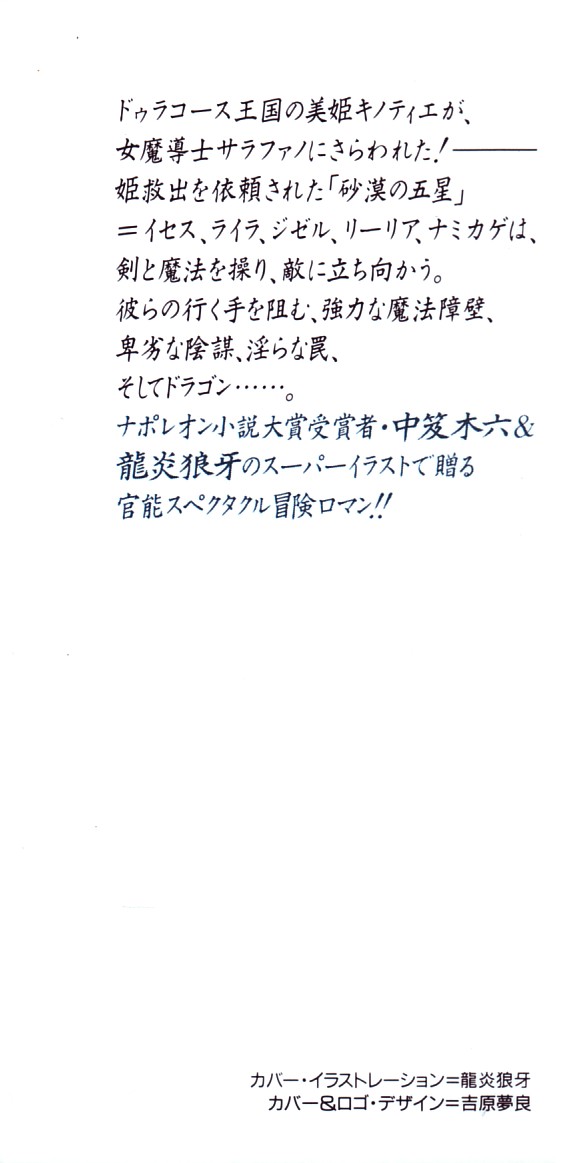 ドゥラコース王国の美姫キノティエが、
女魔導士サラファノにさらわれた!────
姫救出を依頼された「砂漠の五星」
=イセス、ライラ、ジゼル、リーリア、ナミカゲは、
剣と魔法を操り、敵に立ち向かう。
彼らの行く手を阻む、強力な魔法障壁、
卑劣な陰謀、淫らな罠、
そしてドラゴン……。
ナポレオン小説大賞受賞者・中笈木六&
龍炎狼牙のスーパーイラストで贈る
官能スペクタクル冒険ロマン!!
カバー・イラストレーション=龍炎狼牙
カバー&ロゴ・デザイン=吉原夢良